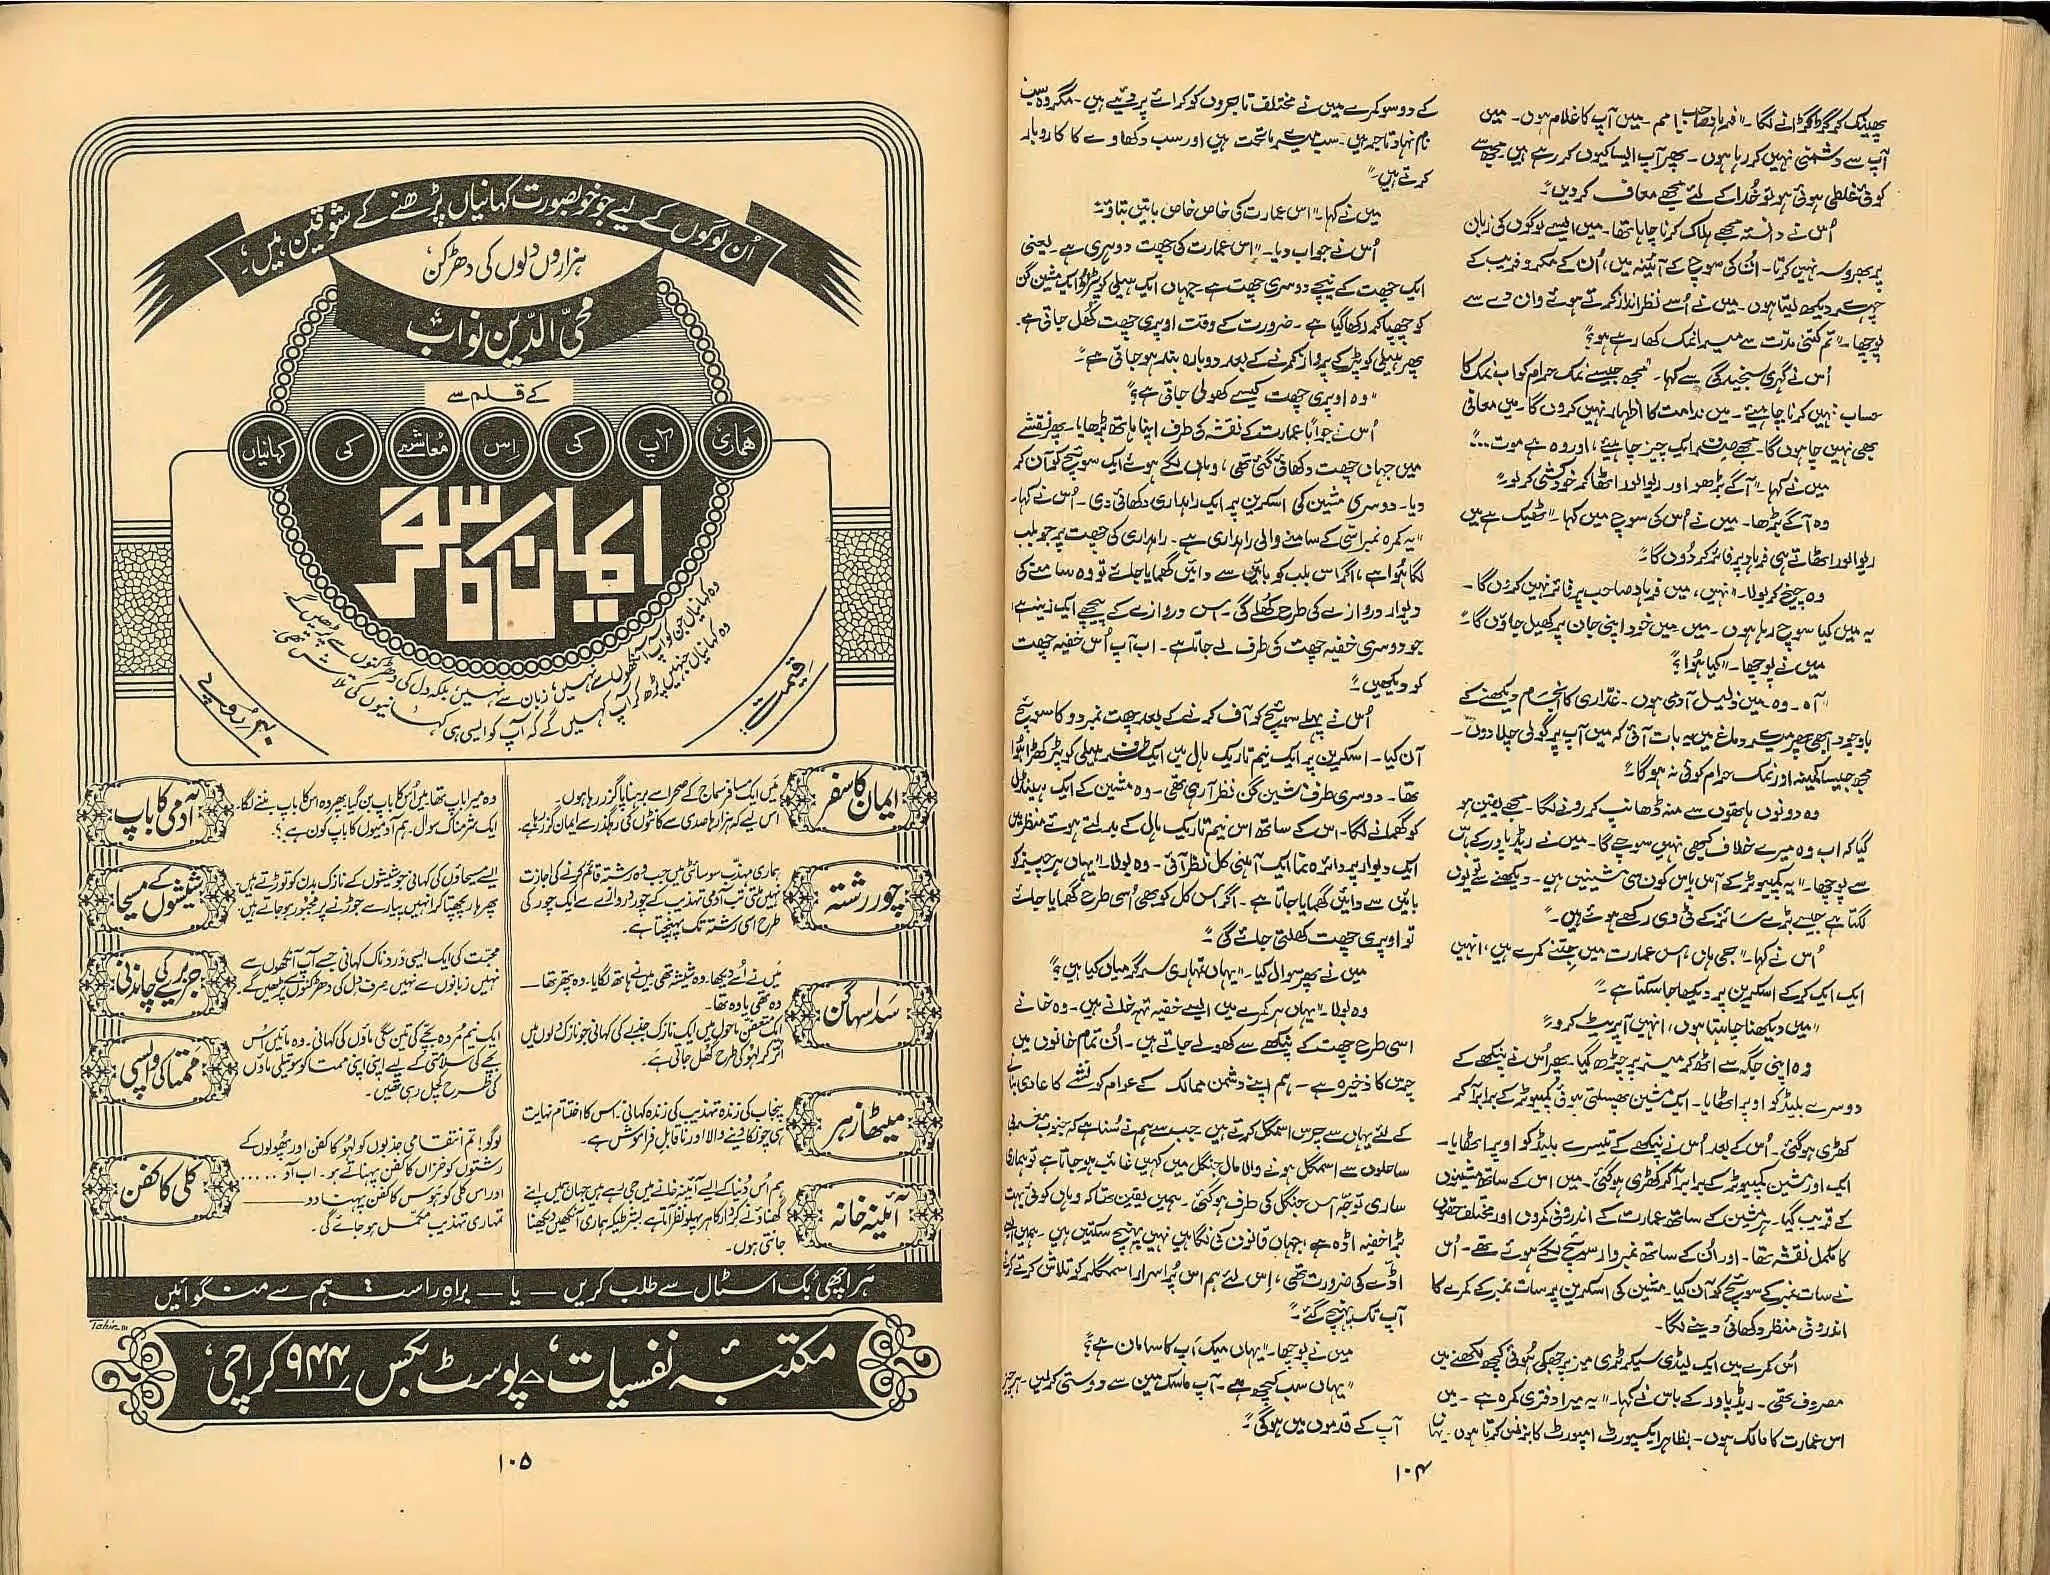 پھینک کر گڑگڑانے لگا۔ "فرہاد صاحب! مم۔ میں آپ کا غلام ہوں۔ میں
آپ سے دشمنی نہیں کر رہا ہوں۔ پھر آپ ایسا کیوں کر رہے ہیں۔ مجھ سے
کوئی غلطی ہوئی ہو تو خُدا کے لئے مجھے معاف کر دیں"۔
اُس نے دانستہ مجھے ہلاک کرنا چاہا تھا۔ میں ایسے لوگوں کی زبان
پر بھروسہ نہیں کرتا۔ اُن کی سوچ کے آئینہ میں، اُن کے مکر و فریب کے
چہرے دیکھ لیتا ہوں۔ میں نے اُسے نظر انداز کرتے ہوئے وان دے سے
پوچھا۔ "تم کتنی مدّت سے میرا نمک کھا رہے ہو؟"
اُس نے گہری سنجیدگی سے کہا۔ "مجھ جیسے نمک حرام کو اب نمک کا
حساب نہیں کرنا چاہیئے۔ میں ندامت کا اظہار نہیں کروں گا۔ میں معافی
بھی نہیں چاہوں گا۔ مجھے صرف ایک چیز چاہیئے، اور وہ ہے موت..."
میں نے کہا۔ "آگے بڑھو اور ریوالور اٹھا کر خودکشی کر لو"۔
وہ آگے بڑھا۔ میں نے اُس کی سوچ میں کہا۔ "ٹھیک ہے میں
ریوالور اٹھاتے ہی فرہاد پر فائر کر دُوں گا"۔
وہ چیخ کر بولا۔ "نہیں، میں فرہاد صاحب پر فائر نہیں کروں گا۔
یہ میں کیا سوچ رہا ہوں۔ میں، میں خود اپنی جان پر کھیل جاؤں گا"۔
میں نے پوچھا۔ "کیا ہُوا؟"
"آہ۔ وہ میں ذلیل آدمی ہوں۔ غدّاری کا انجام دیکھنے کے
باوجود ابھی پھر میرے دماغ میں یہ بات آئی کہ میں آپ پر گولی چلا دوں۔
مجھ جیسا کمینہ اور نمک حرام کوئی نہ ہو گا"۔
وہ دونوں ہاتھوں سے منہ ڈھانپ کر رونے لگا۔ مجھے یقین ہو
گیا کہ اب وہ میرے خلاف کبھی نہیں سوچے گا۔ میں نے ریڈ پاور کے باس
سے پوچھا۔ "یہ کمپیوٹر کے آس پاس کون سی مشینیں ہیں۔ دیکھنے سے یوں
لگتا ہے جیسے بڑے سائز کے ٹی وی رکھے ہوئے ہیں"۔
اُس نے کہا۔ "جی ہاں، اس عمارت میں جتنے کمرے ہیں، انہیں
ایک ایک کر کے اسکرین پر دیکھا جا سکتا ہے"۔
"میں دیکھنا چاہتا ہوں، انہیں آپریٹ کرو"۔
وہ اپنی جگہ سے اٹھ کر میز پر چڑھ گیا۔ پھر اُس نے پنکھے کے
دوسرے بلیڈ کو اوپر اٹھایا۔ ایک مشین پھسلتی ہوئی کمپیوٹر کے برابر آ کر
کھڑی ہو گئی۔ اُس کے بعد اُس نے پنکھے کے تیسرے بلیڈ کو اوپر اٹھایا۔
ایک اور مشین کمپیوٹر کے برابر آ کر کھڑی ہو گئی۔ میں اس کے ساتھ مشینوں
کے قریب گیا۔ ہر مشین کے ساتھ عمارت کے اندرونی کمروں اور مختلف حصّوں
کا مکمل نقشہ تھا۔ اور اُن کے ساتھ نمبر وار سوئچ لگے ہوئے تھے۔ اُس
نے سات نمبر کے سوئچ کو آن کیا۔ مشین کی اسکرین پر سات نمبر کے کمرے کا
اندرونی منظر دکھائی دینے لگا۔
اُس کمرے میں ایک لیڈی سیکرٹری میز پر جھکی ہوئی کچھ لکھنے میں
مصروف تھی۔ ریڈ پاور کے باس نے کہا۔ "یہ میرا دفتری کمرہ ہے۔ میں
اس عمارت کا مالک ہوں۔ بظاہر ایکسپورٹ امپورٹ کا بزنس کرتا ہوں۔ یہاں
کے دو سو کمرے میں نے مختلف تاجروں کو کرائے پر دیئے ہیں۔ مگر وہ سب
نام نہاد تاجر ہیں۔ سب میرے ماتحت ہیں اور سب دکھاوے کا کاروبار
کرتے ہیں"۔
میں نے کہا۔ "اس عمارت کی خاص خاص باتیں بتاؤ"۔
اُس نے جواب دیا۔ "اس عمارت کی چھت دوہری ہے۔ یعنی
ایک چھت کے نیچے دوسری چھت ہے۔ جہاں ایک ہیلی کوپٹر اور ایک مشین گن
کو چھپا کر رکھا گیا ہے۔ ضرورت کے وقت اوپری چھت کُھل جاتی ہے۔
پھر ہیلی کوپٹر کے پرواز کرنے کے بعد دوبارہ بند ہو جاتی ہے"۔
"وہ اوپری چھت کیسے کھولی جاتی ہے؟"
اُس نے جواباً عمارت کے نقشہ کی طرف اپنا ہاتھ بڑھایا۔ پھر نقشے
میں جہاں چھت دکھائی گئی تھی، وہاں لگے ہوئے ایک سوئچ کو آن کر
دیا۔ دوسری مشین کی اسکرین پر ایک راہداری دکھائی دی۔ اُس نے کہا۔
"یہ کمرہ نمبر اسّی کے سامنے والی راہداری ہے۔ راہداری کی چھت پر جو بلب
لگا ہُوا ہے، اگر اس بلب کو بائیں سے دائیں گھمایا جائے تو وہ سامنے کی
دیوار دروازے کی طرح کُھلے گی۔ اس دروازے کے پیچھے ایک زینہ ہے
جو دوسری خفیہ چھت کی طرف لے جاتا ہے۔ اب آپ اُس خفیہ چھت
کو دیکھیں"۔
اُس نے پہلے سوئچ کو آف کرنے کے بعد چھت نمبر دو کا سوئچ
آن کیا۔ اسکرین پر ایک نیم تاریک ہال میں ایک طرف ہیلی کوپٹر کھڑا ہُوا
تھا۔ دوسری طرف مشین گن نظر آ رہی تھی۔ وہ مشین کے ایک ہینڈل
کو گھمانے لگا۔ اس کے ساتھ اس نیم تاریک ہال کے بدلتے ہوئے منظر میں
ایک دیوار پر دائرہ نما ایک آہنی کل نظر آئی۔ وہ بولا۔ "یہاں ہر چیز کو
بائیں سے دائیں گھمایا جاتا ہے۔ اگر اس کل کو بھی اُسی طرح گھمایا جائے
تو اوپری چھت کھلتی جائے گی"۔
میں نے پھر سوال کیا۔ "یہاں تمہاری سرگرمیاں کیا ہیں؟"
وہ بولا۔ "یہاں ہر کمرے میں ایسے خفیہ تہہ خانے ہیں۔ وہ خانے
اسی طرح چھت کے پنکھے سے کھولے جاتے ہیں۔ اُن تمام خانوں میں
چرس کا ذخیرہ ہے۔ ہم اپنے دشمن ممالک کے عوام کو نشے کا عادی بنانے
کے لئے یہاں سے چرس اسمگل کرتے ہیں۔ جب سے ہم نے سُنا ہے کہ جنوب مغربی
ساحلوں سے اسمگل ہونے والا مال جنگل میں کہیں غائب ہو جاتا ہے تو ہماری
ساری توجہ اس جنگل کی طرف ہو گئی۔ ہمیں یقین تھا کہ وہاں کوئی بہت
بڑا خفیہ اڈہ ہے، جہاں قانون کی نگاہیں نہیں پہنچ سکتیں ہیں۔ ہمیں ایسے
اڈّے کی ضرورت تھی، اِس لئے ہم اس پُر اسرار اسمگلر کو تلاش کرتے کرتے
آپ تک پہنچ گئے"۔
میں نے پوچھا۔ "یہاں میک اَپ کا سامان ہے؟"
"یہاں سب کچھ ہے۔ آپ ماسک مین سے دوستی کر لیں۔ ہر چیز
آپ کے قدموں میں ہو گی"۔
۱۰۴
اُن لوگوں کے لیے جو خوبصورت کہانیاں پڑھنے کے شوقین ہیں،
ہزاروں دلوں کی دھڑکن،
محیّ الدّین نواب
کے قلم سے
ہماری آپ کی اِس مُعاشرے کی کہانیاں
ایمان کا سفر
وہ کہانیاں جن کو آپ آنکھوں سے نہیں، زبان سے نہیں، بلکہ دل کی دھڑکنوں سے پڑھیں گے
وہ کہانیاں جنہیں پڑھ کر آپ کہیں گے کہ آپ کو ایسی ہی کہانیوں کی تلاش تھی،
قیمت
روپے
ایمان کا سفر
مَیں ایک مسافر سماج کے صحرا سے برہنہ پا گزر رہا ہوں۔
اس لیے کہ ہزارہا صدی سے کانٹوں کی رہگذر سے ایمان گزر رہا ہے۔
چور رشتہ
ہماری مہذب سوسائٹی میں جب وہ رشتہ قائم کرنے کی اجازت
نہیں ملتی تب آدمی تہذیب کے چور دروازے سے ایک چور کی
طرح اسی رشتہ تک پہنچتا ہے۔
سدا سہاگن
مَیں نے اُسے دیکھا۔ وہ شیشہ تھی میں نے ہاتھ لگایا۔ وہ پتھر تھا ــــ
وہ تھی یا وہ تھا۔
ایک متعفن ماحول میں ایک نازک جذبے کی کہانی جو نازک دلوں میں
اُتر کر لہو کی طرح گھل جاتی ہے۔
میٹھا زہر
پنجاب کی زندہ تہذیب کی زندہ کہانی۔ اس کا اختتام نہایت
ہی چونکا دینے والا اور ناقابلِ فراموش ہے۔
آئینہ خانہ
ہم اُس دُنیا کے ایسے آئینہ خانے میں جی رہے ہیں جہاں ہمیں اپنے
گھناؤنے کردار کا ہر پہلو نظر آتا ہے۔ بشرطیکہ ہماری آنکھیں دیکھنا
جانتی ہوں۔
آدمی کا باپ
وہ میرا باپ تھا۔ میں اُس کا باپ بن گیا۔ پھر وہ اس کا باپ بننے لگا۔
ایک شرمناک سوال۔ ہم آدمیوں کا باپ کون ہے؟
شیشوں کے مسیحا
ایسے مسیحاؤں کی کہانی جو شیشوں کے نازک بدن کو توڑتے ہیں
پھر ہار پچھتا کر انہیں پیار سے جوڑنے پر مجبور ہو جاتے ہیں۔
جزیرے کی چاندنی
محبّت کی ایک ایسی دَرد ناک کہانی جسے آپ آنکھوں سے
نہیں زبانوں سے نہیں صِرف دِل کی دھڑکنوں سے پڑھیں گے۔
ممتا کی واپسی
ایک نیم مُردہ بچّے کی تین سگی ماؤں کی کہانی۔ وہ مائیں اُس
بچّے کی سلامتی کے لیے اپنی اپنی ممتا کو سوتیلی ماؤں
کی طرح کچل رہی تھیں۔
کلی کا کفن
لوگو! تم انتقامی جذبوں کو لہُو کا کفن اور پھُولوں کے
رشتوں کو خزاں کا کفن پہناتے ہو۔ اب آؤ ......
اور اس کلی کو ہَوس کا کفن پہنا دو ــــ
تمہاری تہذیب مکمّل ہو جائے گی۔
ہر اچھی بُک اسٹال سے طلب کریں ــ یا ــ براہِ راست ہم سے منگوائیں
Tahir
مکتبۂ نفسیات، پوسٹ بکس ۹۴۴ کراچی،
۱۰۵